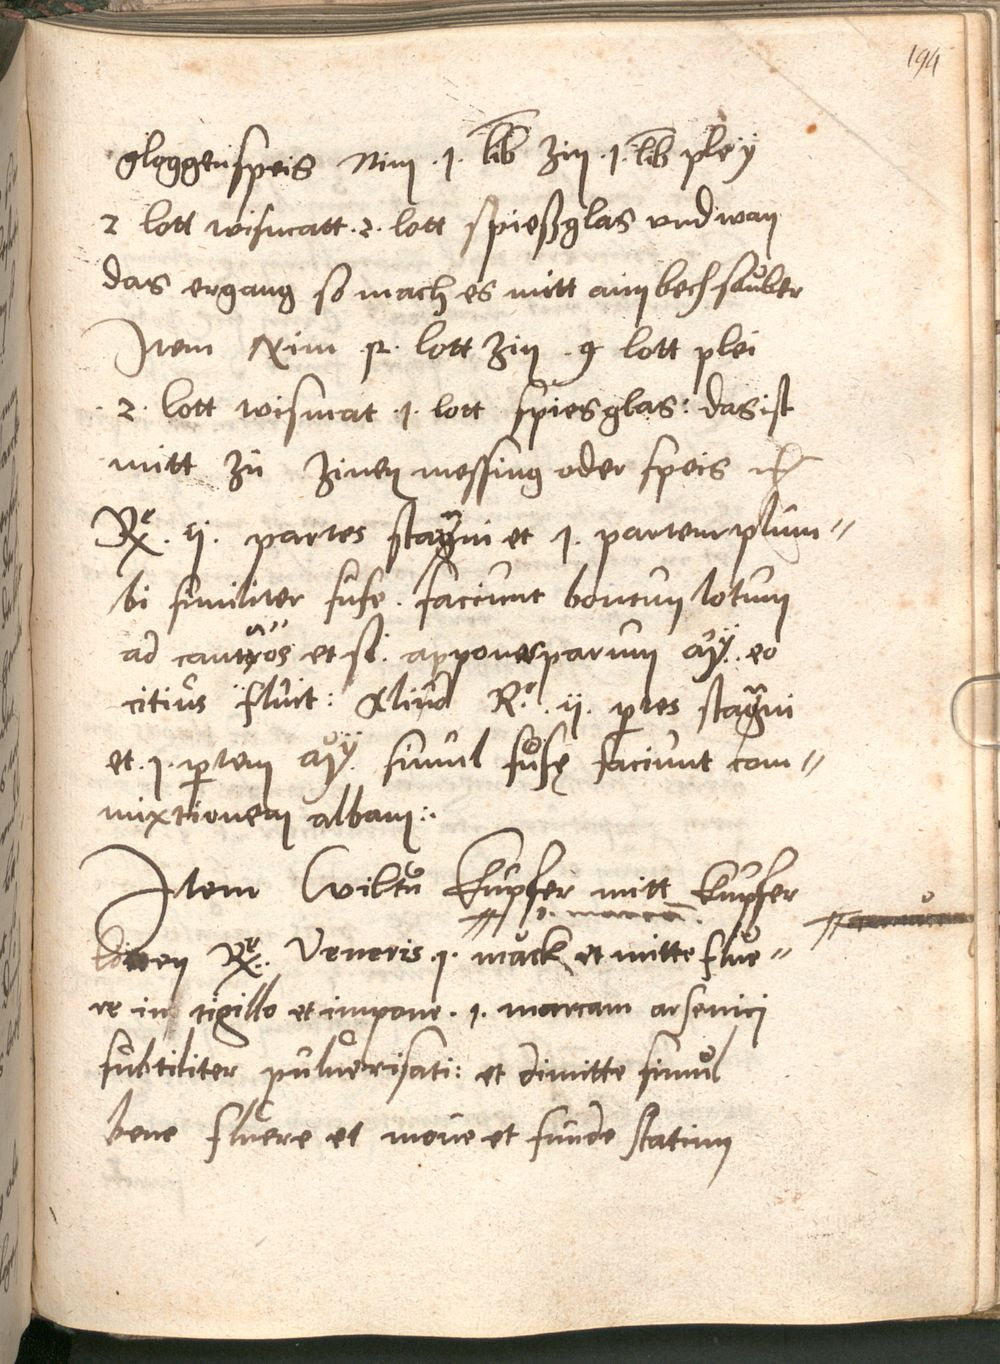 194
gloggenspeis Nim .1. lib zin .1. lib pleÿ
2 lott wismatt .2. lott spießglas vnd wan
das ergang so mach es mitt aim bech sauber
Item Nim 12. lott zin .9 lott plei
.2. lott wismat .1. lott spiesglas: das ist
mitt zu zinen messing oder speis
Rx. ij. partes stagni et 1. partem plum=
bi similiter fuse. faciunt bonum lotum
ad et si. appones parum eo
citius fluit: Aliud R. .ij. partes stagni
et .1. partem simul fuse faciunt com=
mixtionem albam:.
Item Wiltu kupfer mitt kupfer
1. marca.
lötten Rx. Veneris .1. marck et mitte flue=
re in tigillo et impone .1. marcam arsenici
subtiliter puluerisati: et dimitte simul
bene fluere et moue et funde statim